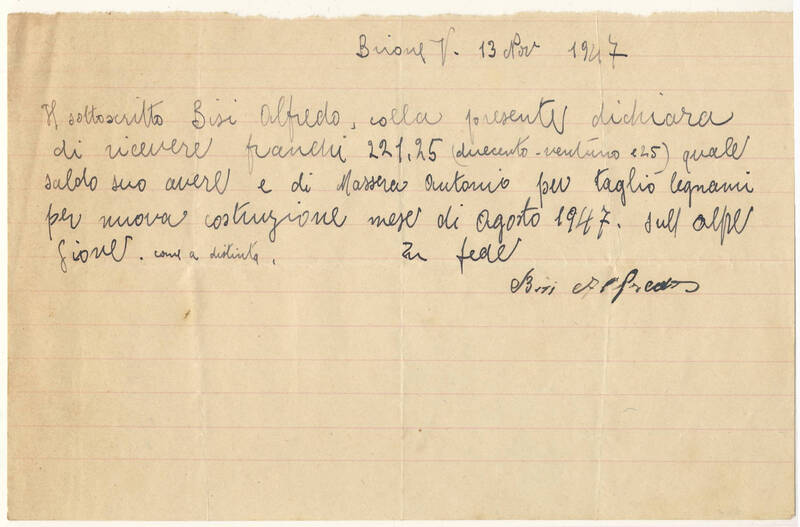 Brione V. 13 Nov 1947
Il sottoscritto Bisi Alfredo, colla presente dichiara
di ricevere franchi 221,25 (duecento-ventuno e 25) quale
saldo suo avere e di Massera Antonio per taglio legnami
per nuova costruzione mese di Agosto 1947. sull'alpe
Gione. come a distinta.
In fede
Bisi Alfredo